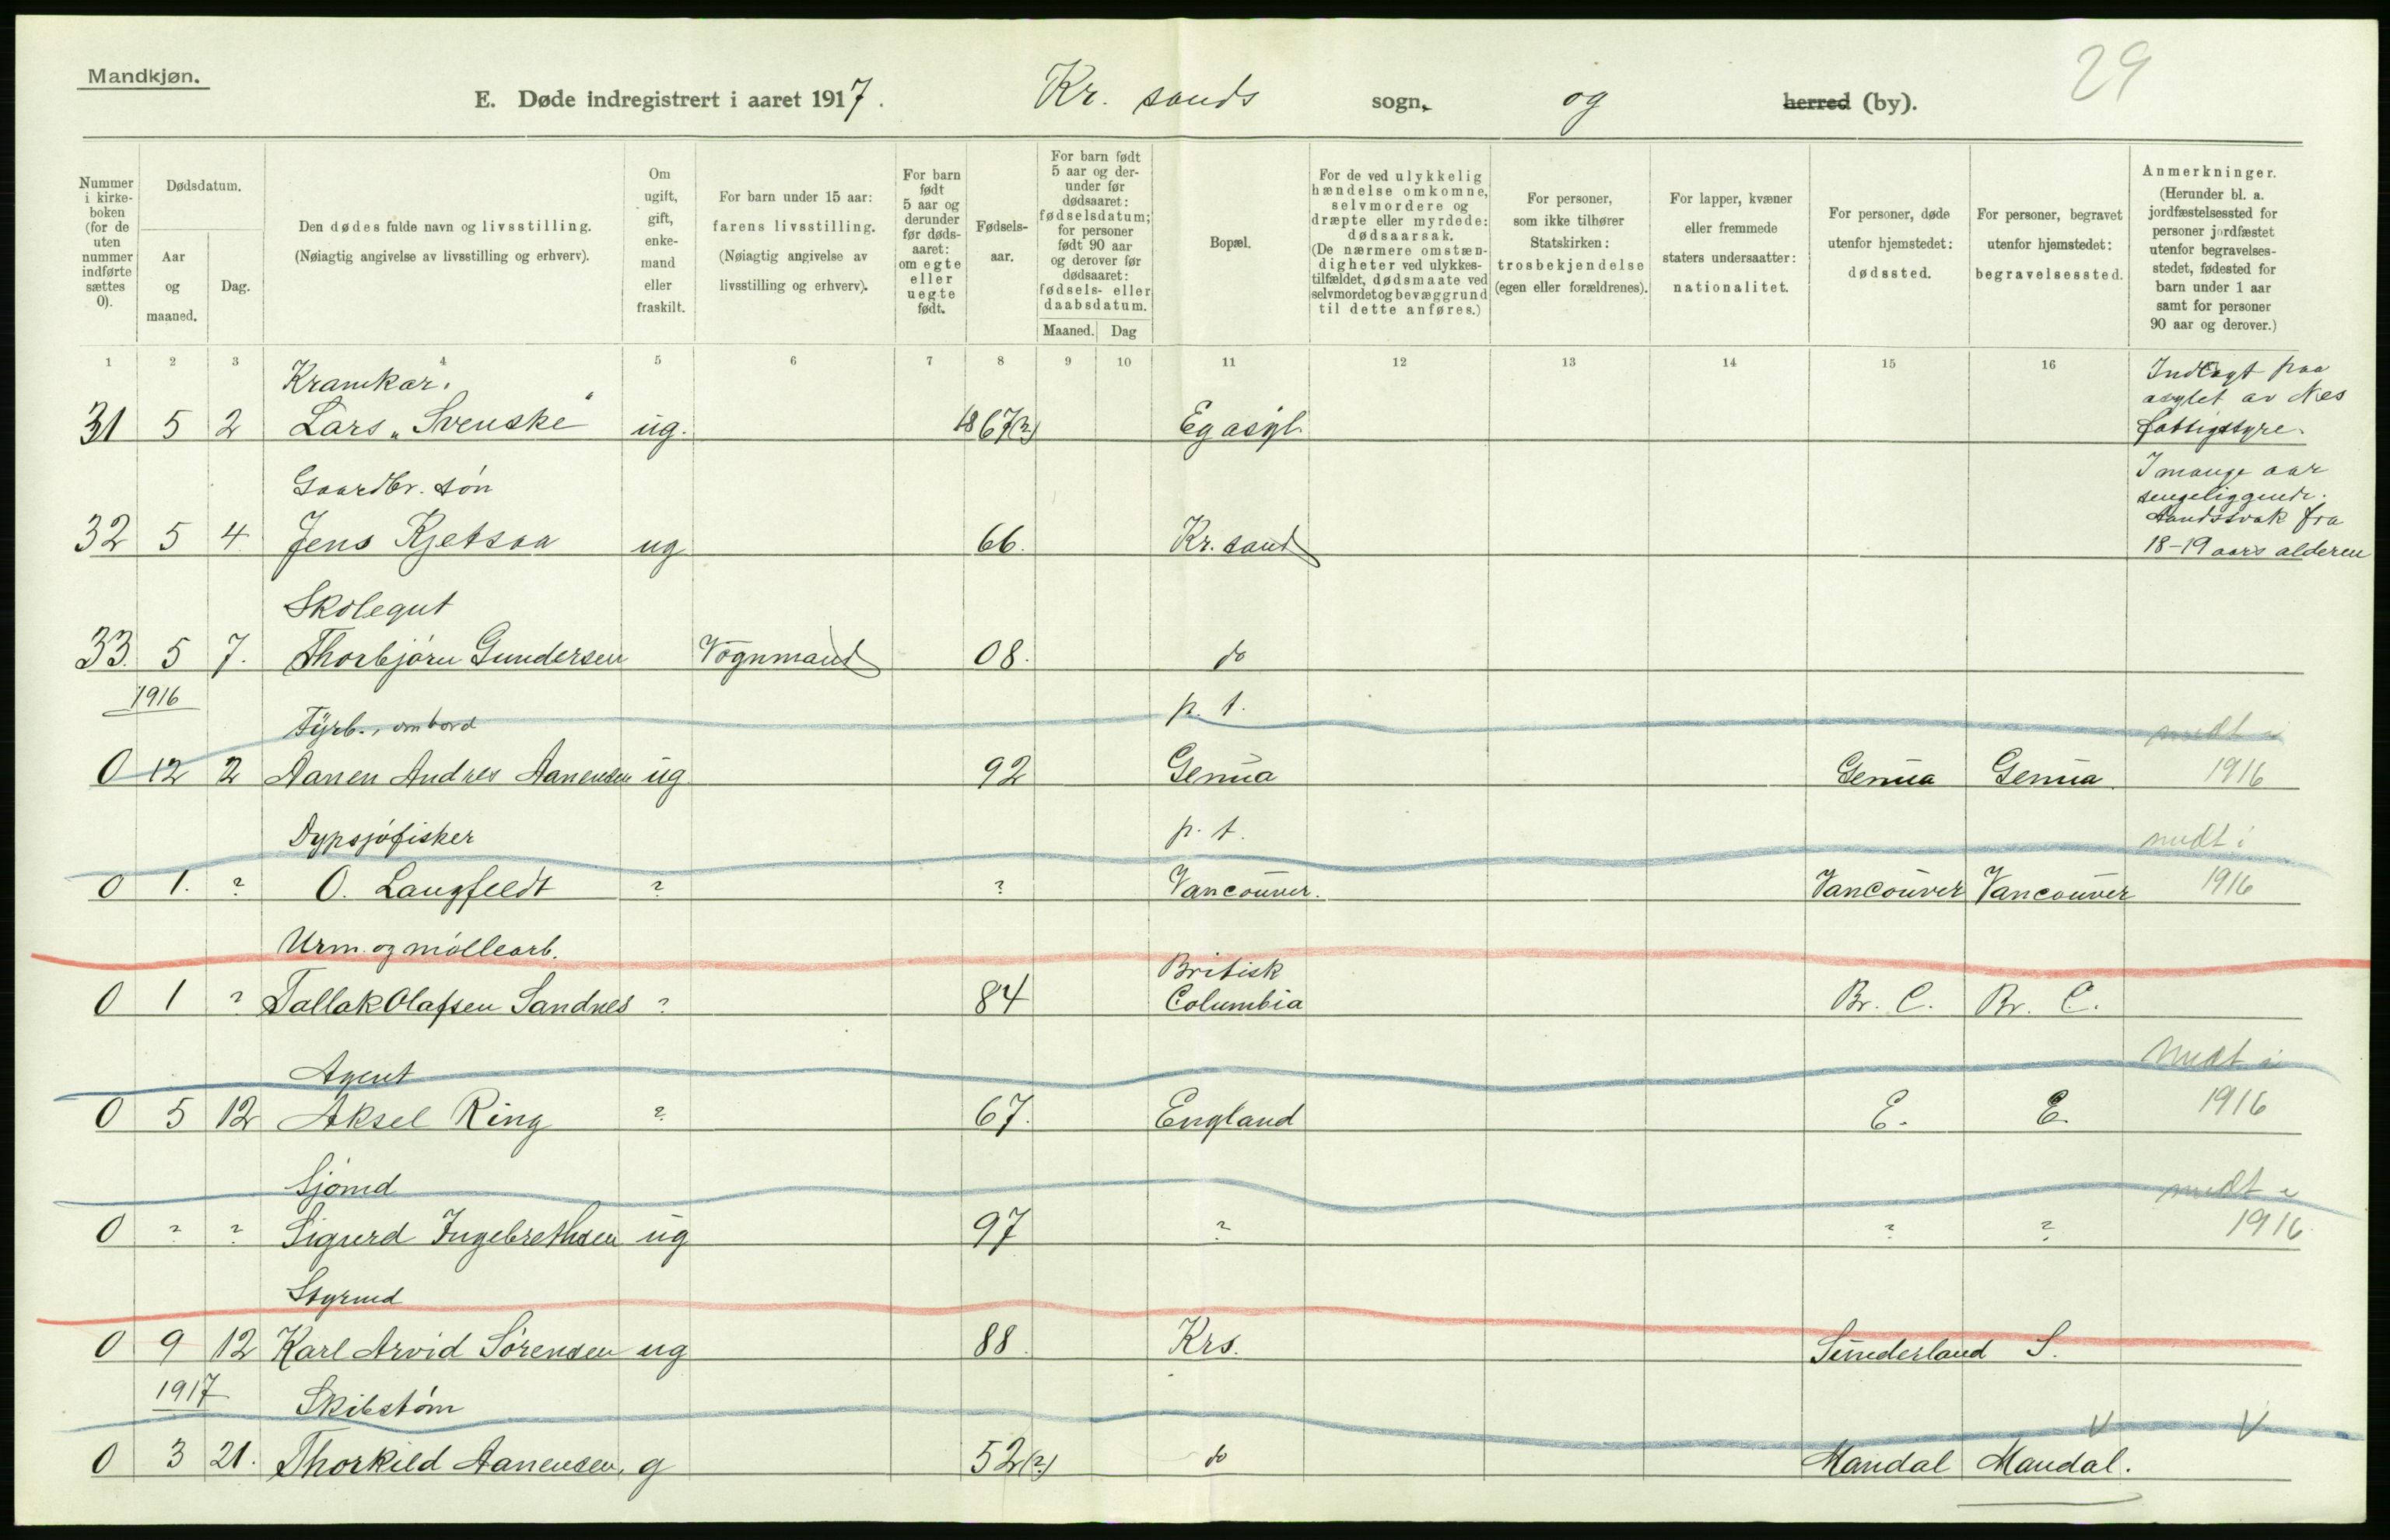 Mandkjøn.
29
E. Døde indregistrert i aaret 1917. Kr. sands sogn, og herred (by).
Nummer i kirke-boken (for de uten nummer indførte sættes 0).
Dødsdatum.
Aar og maaned.
Dag.
Den dødes fulde navn og livsstilling.
(Nøiagtig angivelse av livsstilling og erhverv).
Om ugift, gift, enke-mand eller fraskilt.
For barn under 15 aar: farens livsstilling.
(Nøiagtig angivelse av livsstilling og erhverv).
For barn født 5 aar og derunder før døds-aaret: om egte eller uegte født.
Fødsels-aar.
For barn født 5 aar og der-under før dødsaaret: fødselsdatum; for personer født 90 aar og derover før dødsaaret: fødsels- eller daabsdatum.
Maaned.
Dag
Bopæl.
For de ved ulykkelig hændelse omkomne, selvmordere og dræpte eller myrdede: dødsaarsak.
(De nærmere omstæn-digheter ved ulykkes-tilfældet, dødsmaate ved selvmordet og bevæggrund til dette anføres.)
For personer, som ikke tilhører Statskirken: trosbekjendelse (egen eller forældrenes).
For lapper, kvæner eller fremmede staters undersaatter: nationalitet.
For personer, døde utenfor hjemstedet: dødssted.
For personer, begravet utenfor hjemstedet: begravelsessted.
Anmerkninger.
(Herunder bl. a. jordfæstelsessted for personer jordfæstet utenfor begravelses-stedet, fødested for barn under 1 aar samt for personer 90 aar og derover.)
1 2 3 4 5 6 7 8 9 10 11 12 13 14 15 16
Kramkar.
31 5 2 Lars "Svenske" ug. 1867(?) Eg asyl. Indlagt paa
asylet av Nes
fattigstyre.
Gaardbr. søn
32 5 4 Jens Kjetsaa ug 66. Kr. sand I mange aar
sengeliggende.
Aandssvak fra
18-19 aars alderen
Skolegut
33. 5 7. Thorbjørn Gundersen Vognmand 08. do
1916
Fyrb., ombord p. t. medt i
0 12 2 Aanen Andres Aanensen ug 92 Genua Genua Genua. 1916
Dypsjøfisker p. t. medt i
0 1. ? O. Langfeldt ? ? Vancouver. Vancouver Vancouver 1916
Urm. og møllearb. Britisk
0 1 ? Tallak Olafsen Sandnes ? 84 Columbia Br. C. Br. C.
Agent Medt i
0 5 12 Aksel Ring ? 67. England E. E. 1916
Sjømd medt i
0 ? ? Sigurd Ingebrethsen ug 97 ? ? ? 1916
Styrmd
0 9 12 Karl Arvid Sørensen ug 88. Krs. Sunderland S.
1917 Skibstøm V V
0 3 21. Thorkild Aanensen, g 52(?) do Mandal Mandal.